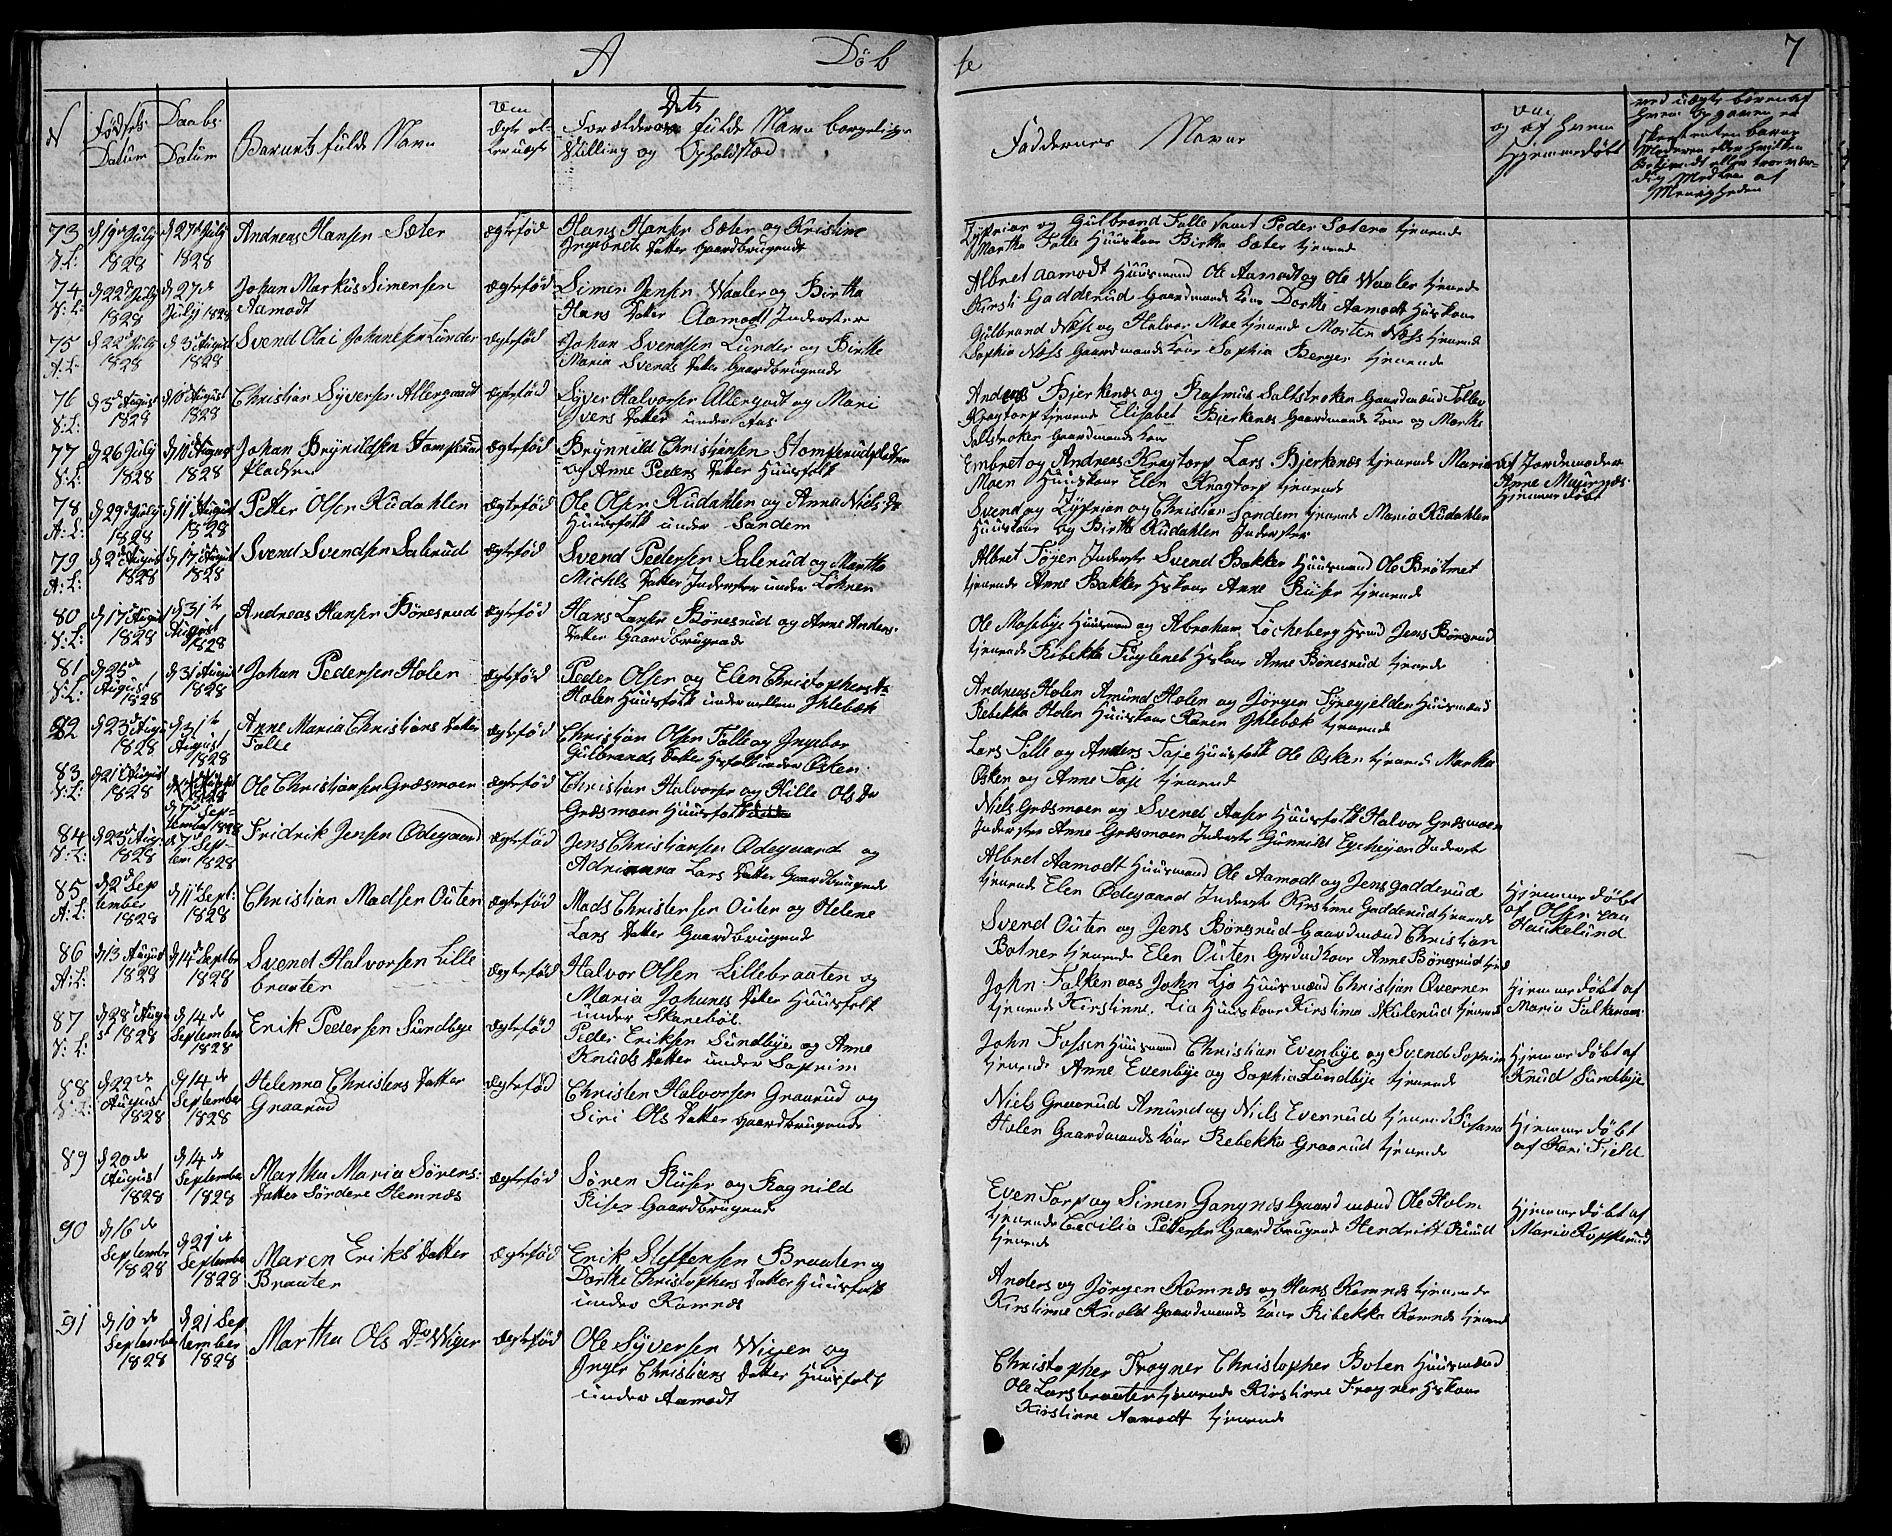 A Døb
te 7
N Fødsels Datum Daabs Datum Barnets fulde Navn Om Ægte eller uægte Dets Forældrenes fulde Navn borgerlige Stilling og Opholdsted
Faddernes Navne
og af hvem Hjemmedøbt
73 d 19de July 1828 d 27de July 1828 Andreas Hansen Sæter Ægtefød Hans Hansen Sæter og Kristine
Ingebrets Datter Gaardbrugende
og Gulbrand Falle samt Peder Sætere tjenende
Martha Falle Huuskone Birthe Sæter tjenende
74 d 22de July 1828 d 27de July 1828 Johan Markus Simensen
Aamodt Ægtefød Simen Jensen Waaler og Birtha
Hans Datter Aamodt Inderster
Albret Aamodt Huusmand Ole Aamodt og Ole Waaler tjenende
Kirsti Gadderud Gaardmands Kone Dorthe Aamodt Huskone
75 A:L: d 22de July 1828 d 3de August 1828 Svend Olai Johansen Lunder Ægtefød Johan Svendsen Lunder og Birthe
Maria Svends Datter Gaardbrugende
Gulbrand Næss og Halvor Moe tjenende Morten Næss tjenende
Sophia Næss Gaardmands Kone Sophia Berger tjenende
76 d 3de August 1828 d 10de August 1828 Christian Syversen Allergaadt Ægtefød Syver Halvorsen Allergodt og Mari
Ivers Datter under Aas
Anders Bjerkenæs og Rasmus Saltstroken Gaardmænd Tollev
Kragtorp tjenende Elisabet Bjerkenæs Gaardmands Kone og Marthe
Saltstroken Gaardmands Kone
77 d 26 July 1828 d 10de August 1828 Johan Brynildsen Stomperud
Pladsen Ægtefød Brynnild Christiansen Stomperudpladsen
og Anne Peders Datter Huusfolk
Embret og Andreas Kragtorp Lars Bjerkenæs tjenende Maria
Moen Huuskone Elen Kragtorp tjenende
af Jordemoder
Anne
Hjemmedøbt
78 A:L: d 29de July 1828 d 11te August 1828 Petter Olsen Kudahlen Ægtefød Ole Olsen Kudahlen og Anna Niels Dr
Huusfolk under Sandem
Svend og Zyprian og Christian Sandem tjenende Maria Kudahlen
Huuskone og Birthe Kudahlen Inderster
79 A:L: d 2de August 1828 d 17de August 1828 Svend Svendsen Salerud Ægtefød Svend Pedersen Salerud og Marthe
Michels Datter Inderster under Løknen
Albret Tøyen Inderst Svend Bakker Huusmand Ole Brøtmet
tjenende Anne Bakker Hskone Anne Ruser tjenende
80 d 17de August 1828 d 31te August 1828 Andreas Hansen Bønesrud Ægtefød Hans Larsen Bønesrud og Anne Anders
Datter Gaardbrugende
Ole Mosebye Huusmand og Abraham Løcheberg Hsmd Jens Bønesrud
tjenende Ribekka Fuglenet Hskone Anne Bønesrud tjenende
81 d 25de August 1828 d 31 August 1828 Johan Pedersen Holen Ægtefød Peder Olsen og Elen Christophers Dr
Holen Huusfolk under mellem Ihlebæk
Andreas Holen Amund Holen og Jørgen Huusmænd
Rebekka Holen Huuskone Karen Ihlebæk tjenende
82 d 23de August 1828 d 31te August 1828 Anne Maria Christians Datter
Falle Ægtefød Christian Olsen Falle og Ingebor
Gulbrands Datter Hsfolk under Østen
Lars Falle og Anders Taje Huusfolk Ole Østen tjenende Martha
Østen og Anne Taje tjenende
83 d 21de August 1828 d 7de September 1828 Ole Christiansen Græsmoen Ægtefød Christian Halvorsen og Kille Ols Dr
Græsmoen Huusfolk
Niels Græsmoen og Svend Aaser Huusfolk Halvor Græsmoen
Inderster Anne Græsmoen Inderste Gunnild Inderste
84 d 23de Aug: 1828 d 7de September 1828 Fridrik Jensen Ødegaard Ægtefød Jens Christiansen Ødegaard og
Adrianna Lars Datter Gaardbrugende
Albret Aamodt Huusmand Ole Aamodt og Jens Gadderud
tjenende Elen Ødegaard Inderste Kirstine Gadderud tjenende
85 A:L: d 2de September 1828 d 11te Sept: 1828 Christian Madsen Outen Ægtefød Mads Christensen Outen og Helene
Lars Datter Gaardbrugende
Svend Outen og Jens Bønesrud Gaardmænd Christian
Botner tjenende Elen Outen Grdmd Kone Anne Bønesrud
Hjemmedøbt
af Olsen paa
Haukelund
86 A:L: d 13 August 1828 d 14de Septbr 1828 Svend Halvorsen Lille
braaten Ægtefød Halvor Olsen Lillebraaten og
Maria Johanes Datter Huusfolk
under Skanebøl
John Falkenaas John Lio Huusmænd Christian Øverner
tjenende Kirstinne Lia Huuskone Kirstina Skulerud tjenende
Hjemmedøbt af
Maria Falkenaas
87 d 28de August 1828 d 14de September 1828 Erik Pedersen Sundbye Ægtefød Peder Eriksen Sundbye og Anne
Knuds Datter under Soprim
John Fossen Huusmand Christian Evenbye og Svend Soprim
tjenende Anne Evenbye og Sophia Sundbye tjenende
Hjemmedøbt af
Knud Sundbye
88 d 29de August 1828 d 14de September 1828 Helenna Christens Datter
Graarud Ægtefød Christen Halvorsen Graarud og
Siri Ols Datter Gaardbrugende
Niels Graarud Amund og Niels Evenrud tjenende Susana
Holen Gaardmands Kone Rebekka Graarud tjenende
Hjemmedøbt
af Kari Fjeld
89 d 20de August 1828 d 14de September 1828 Martha Maria Sørens
Datter Søndere Hemnæs Ægtefød Søren Ruser og Ragnild
Riser Gaardbrugende
Even Torp og Simen Gangnes Gaardmænd Ole Holm
tjenende Cecilia Pettersen Gaardbrugende Hendrikk Ruud
tjenende
Hjemmedøbt af
Maria Kopperud
90 d 16de September 1828 d 21de September 1828 Maren Eriks Datter
Braaten Ægtefød Erik Steffensen Braaten og
Dorthe Christophers Datter Huusfolk
under Komnæs
Anders og Jørgen Komnæs og Hans Komnæs tjenende
Kirstinne Knold Gaardmands Kone Ribekka Komnæs tjenende
91 d 10de September 1828 d 21 September 1828 Martha Ols Dr Wiger Ægtefød Ole Syversen Wigen og
Inger Christians Datter Huusfolk
under Aamodt
Christopher Trogner Christopher Boten Huusmænd
Ole Larsbraaten tjenende Kirstinne Trogner Hskone
Kirstinne Aamodt tjenende